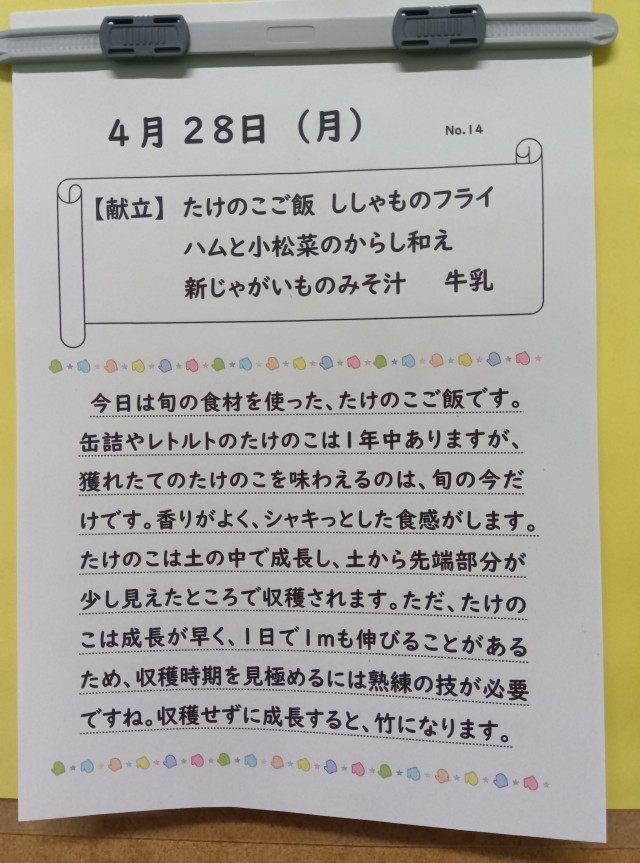 4月28日（月）
No.14
【献立】たけのこご飯 ししゃものフライ
ハムと小松菜のからし和え
新じゃがいものみそ汁 牛乳
今日は旬の食材を使った、たけのこご飯です。
缶詰やレトルトのたけのこは1年中ありますが、
獲れたてのたけのこを味わえるのは、旬の今だ
けです。香りがよく、シャキっとした食感がします。
たけのこは土の中で成長し、土から先端部分が
少し見えたところで収穫されます。ただ、たけの
こは成長が早く、1日で1mも伸びることがある
ため、収穫時期を見極めるには熟練の技が必要
ですね。収穫せずに成長すると、竹になります。